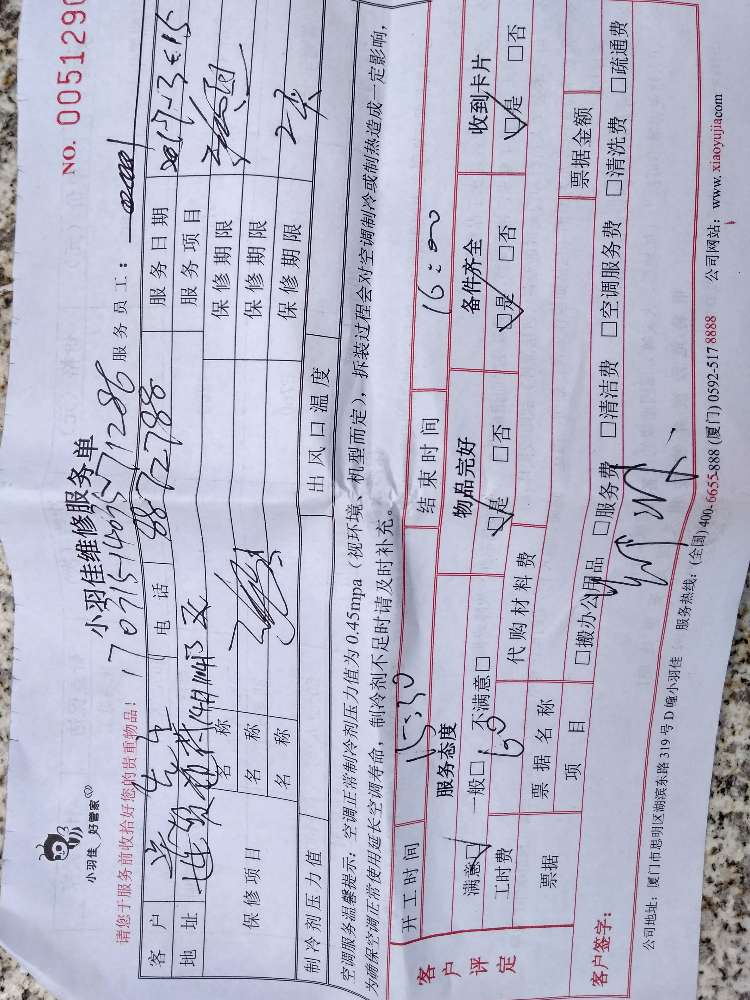 小羽佳 好管家
小羽佳维修服务单
NO. 0051290
170715-14035-71286
请您于服务前收拾好您的贵重物品!
服务员工:
客户 电话 8872788 服务日期
地址 服务项目
保修项目 名称 保修期限
名称 保修期限
名称 保修期限
制冷剂压力值 出风口温度
空调服务温馨提示:空调正常制冷剂压力值为0.45mpa(视环境、机型而定),拆装过程会对空调制冷或制热造成一定影响,
为确保空调正常使用延长空调寿命,制冷剂不足时请及时补充。
开工时间 15:30 结束时间 16:00
客户评定 服务态度 物品完好 备件齐全 收到卡片
满意□ 一般□ 不满意□ □是 □否 □是 □否 □是 □否
工时费 60 代购材料费
票据 票据名称 票据金额
项目 □搬办公用品 □服务费 □清洁费 □空调服务费 □清洗费 □疏通费
客户签字:
公司地址:厦门市思明区湖滨东路319号D幢小羽佳 服务热线:(全国)400-6655-888 (厦门)0592-517 8888 公司网站:www.xiaoyujia.com